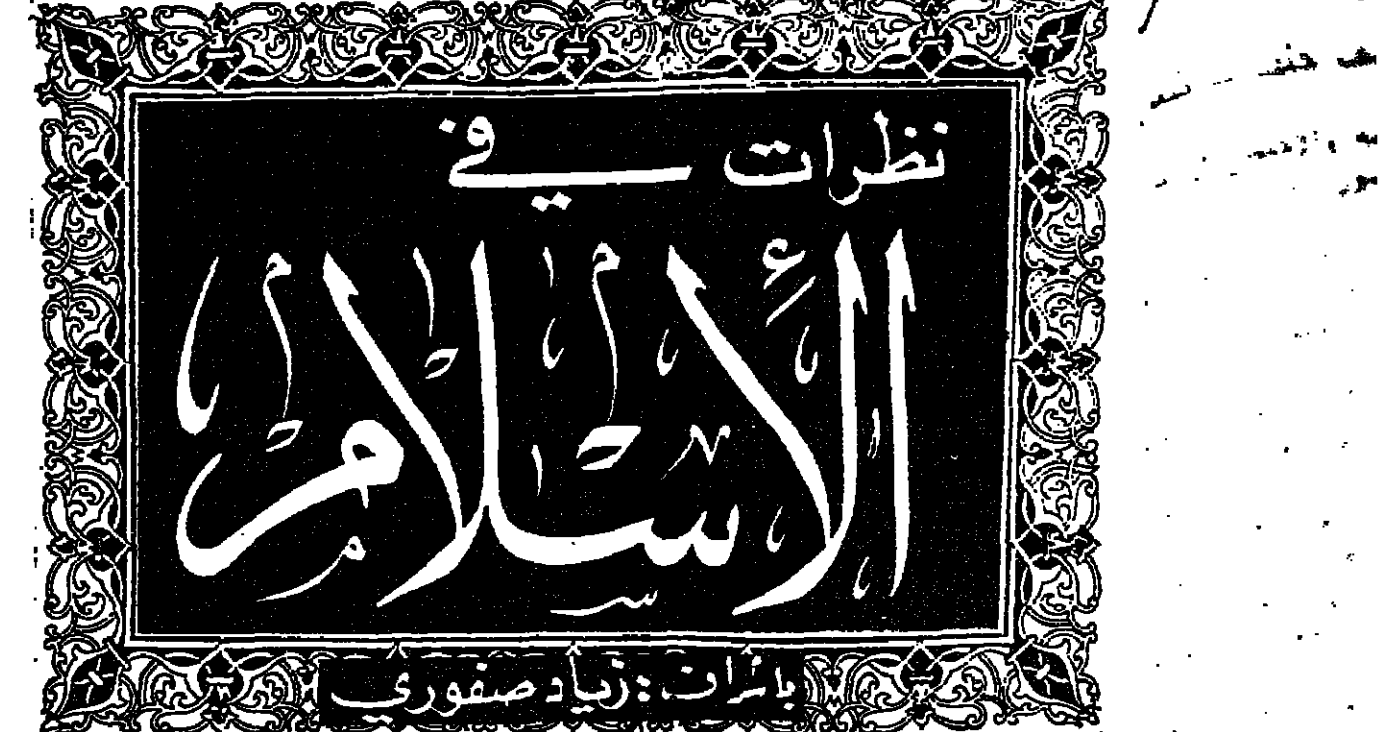 نظرات في
الإسلام
باشراف : زياد صفوري